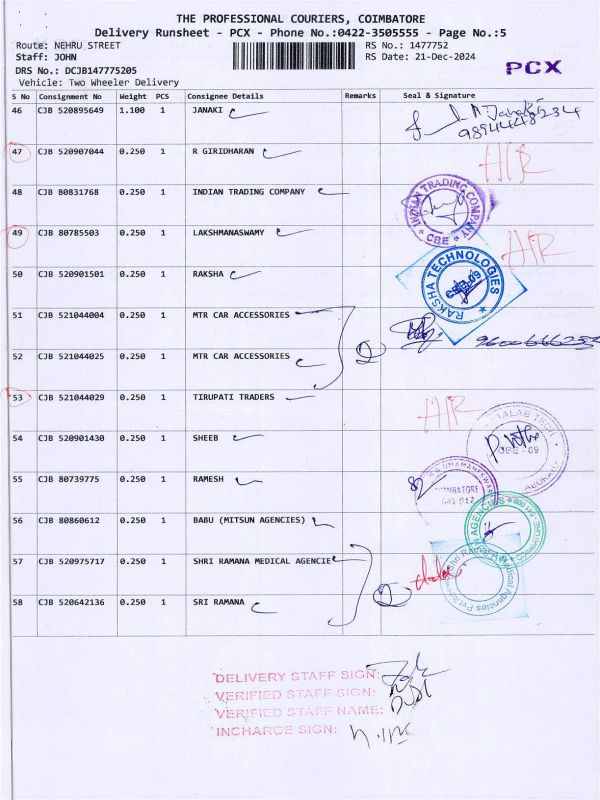 THE PROFESSIONAL COURIERS, COIMBATORE
Delivery Runsheet - PCX - Phone No.:0422-3505555 - Page No.:5
Route: NEHRU STREET RS No.: 1477752
Staff: JOHN RS Date: 21-Dec-2024
DRS No.: DCJB147775205 PCX
Vehicle: Two Wheeler Delivery
S No Consignment No Weight PCS Consignee Details Remarks Seal & Signature
46 CJB 520895649 1.100 1 JANAKI
47 CJB 520907044 0.250 1 R GIRIDHARAN
48 CJB 80831768 0.250 1 INDIAN TRADING COMPANY
INDIAN TRADING COMPANY
CBE
49 CJB 80785503 0.250 1 LAKSHMANASWAMY
50 CJB 520901501 0.250 1 RAKSHA
RAKSHA TECHNOLOGIES
51 CJB 521044004 0.250 1 MTR CAR ACCESSORIES
52 CJB 521044025 0.250 1 MTR CAR ACCESSORIES
53 CJB 521044029 0.250 1 TIRUPATI TRADERS
54 CJB 520901430 0.250 1 SHEEB
55 CJB 80739775 0.250 1 RAMESH
56 CJB 80860612 0.250 1 BABU (MITSUN AGENCIES)
57 CJB 520975717 0.250 1 SHRI RAMANA MEDICAL AGENCIE
58 CJB 520642136 0.250 1 SRI RAMANA
DELIVERY STAFF SIGN:
VERIFIED STAFF SIGN:
VERIFIED STAFF NAME:
INCHARGE SIGN: